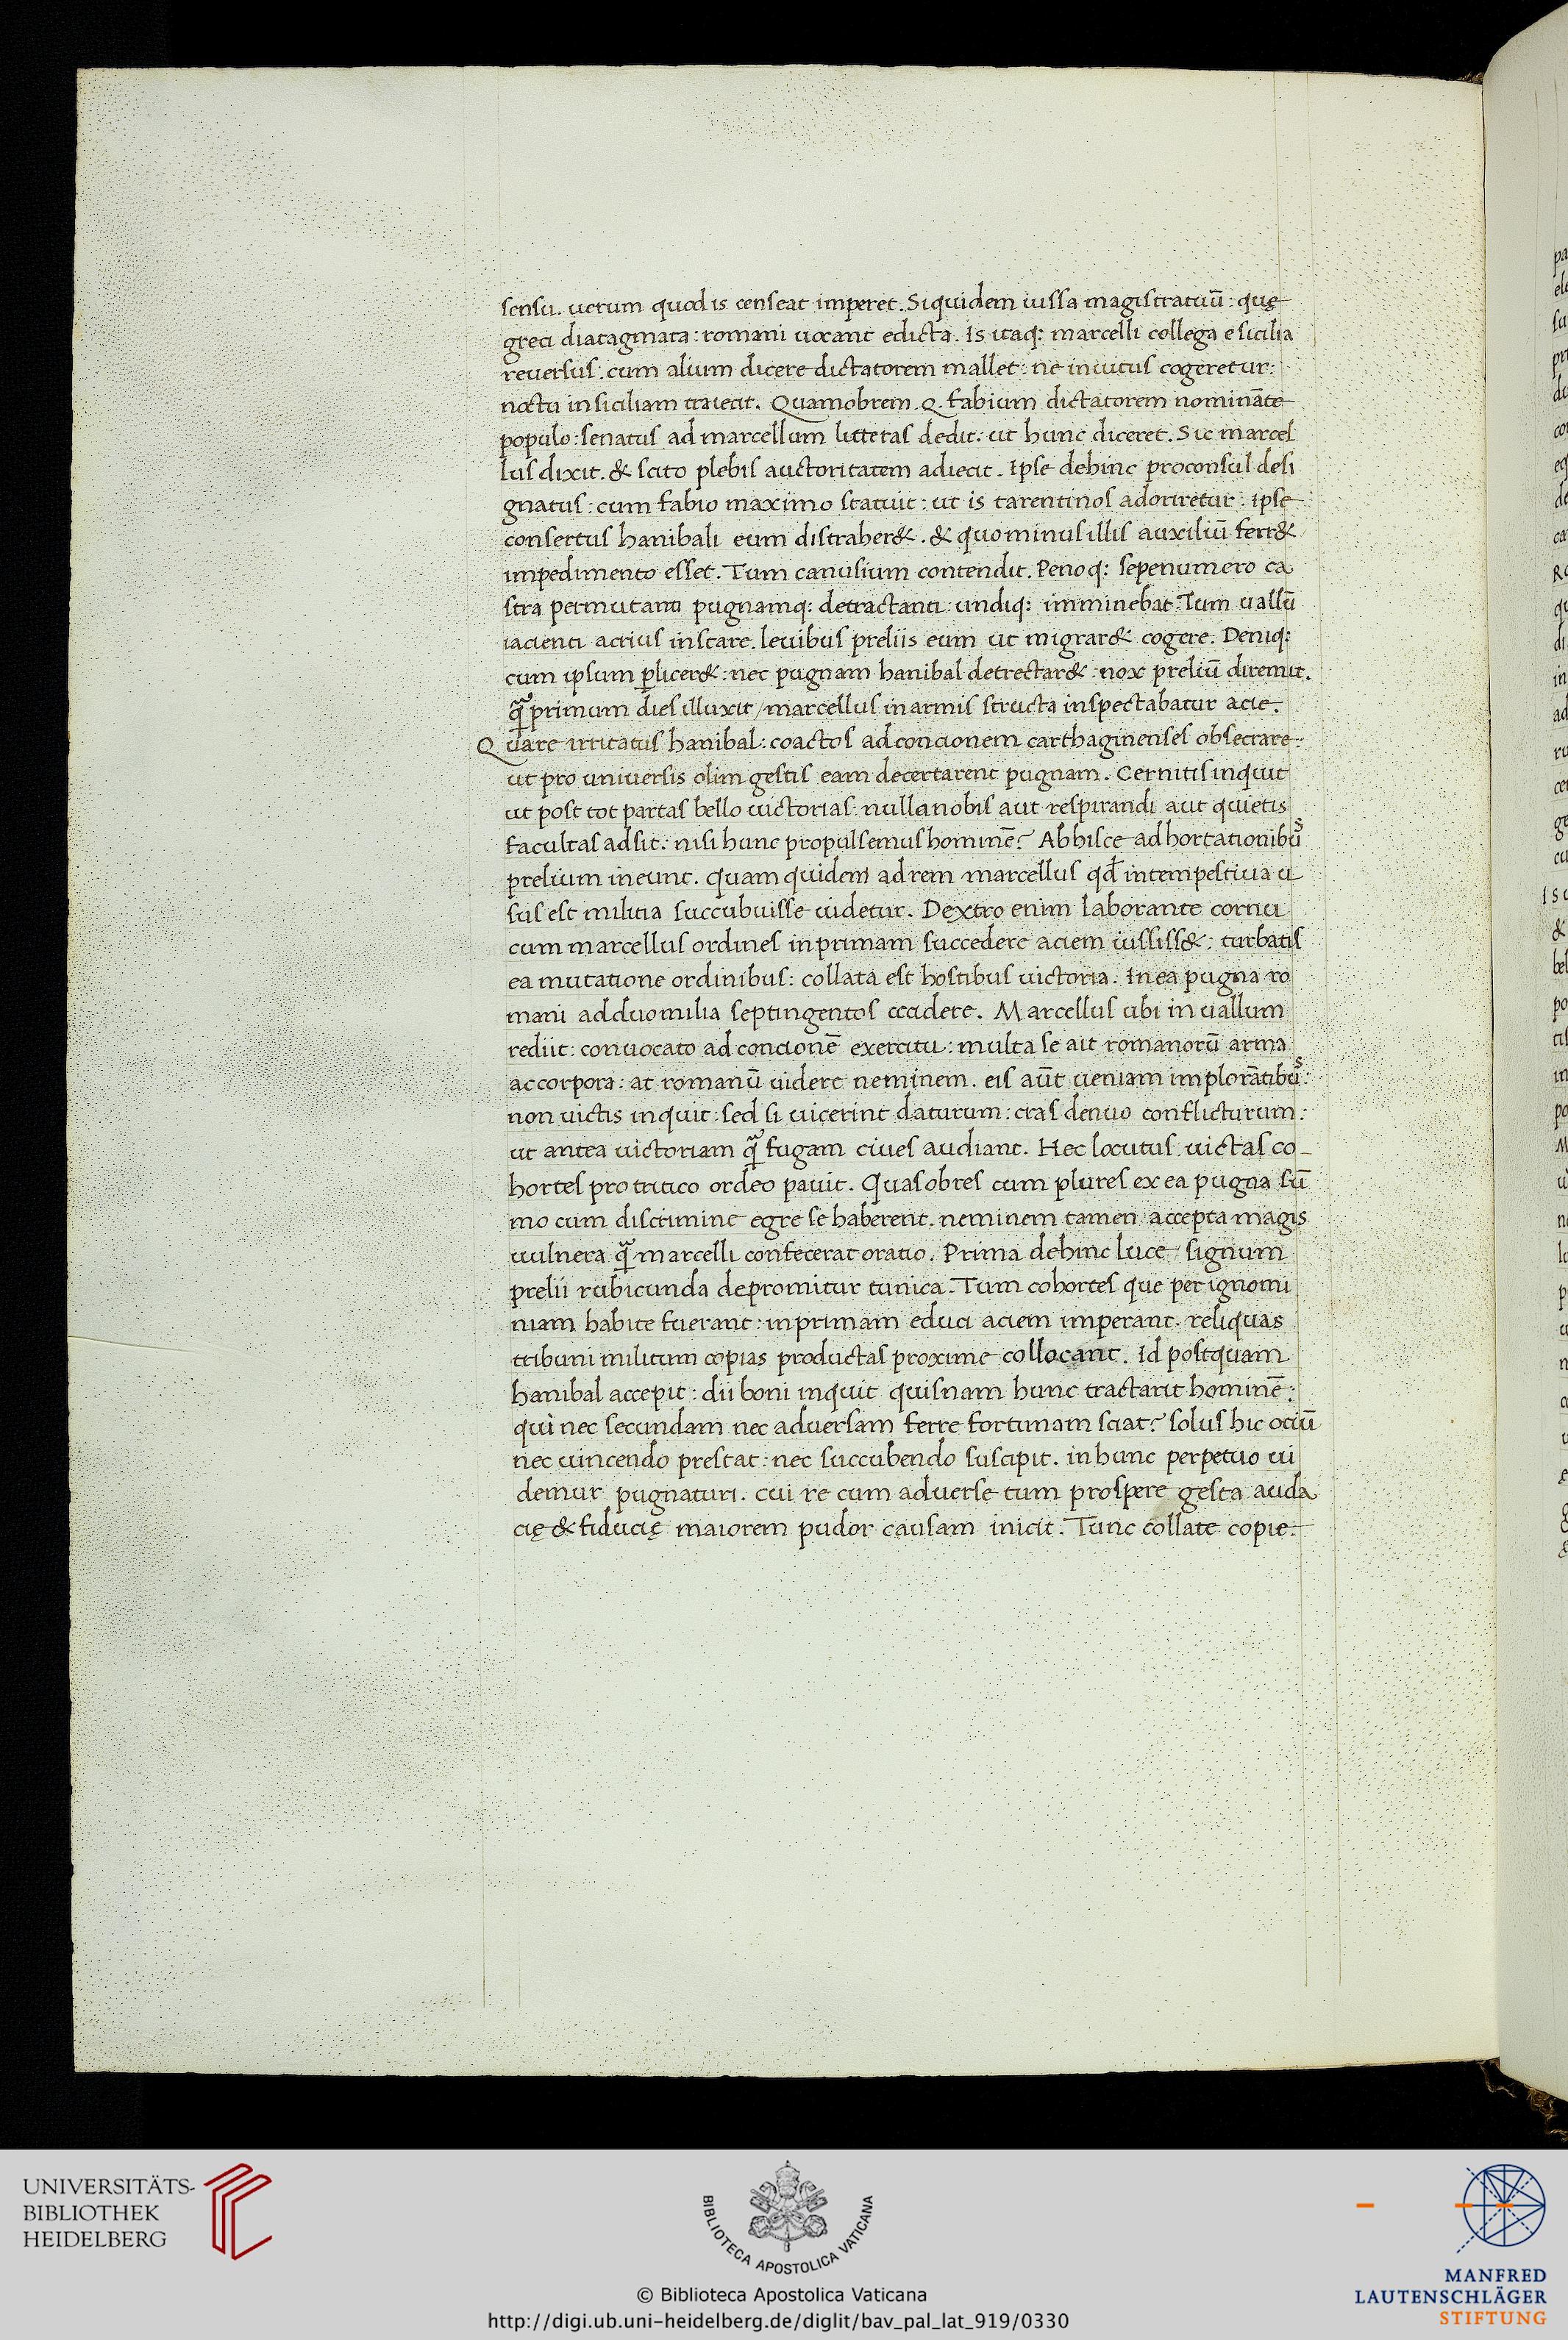 sensu. uerum quod is censeat imperet. Siquidem iussa magistratuū: quę
greci diatagmata: romani uocant edicta. Is itaq: marcelli collega e sicilia
reuersus. cum alium dicere dictatorem mallet: ne inuitus cogeretur:
noctu in siciliam traiecit. Quamobrem. Q. fabium dictatorem nomināte
populo: senatus ad marcellum litteras dedit: ut hunc diceret. Sic marcel
lus dixit. & scito plebis auctoritatem adiecit. Ipse dehinc proconsul desi
gnatus: cum fabio maximo statuit: ut is tarentinos adoriretur: ipse
consertus hanibali eum distraher&. & quominus illis auxiliū ferr&
impedimento esset. Tum canusium contendit. Penoq: sepenumero ca
stra permutanti pugnamq: detractanti: undiq: imminebat. Tum uallū
iacienti acrius instare. leuibus preliis eum ut migrar& cogere. Deniq:
cum ipsum p̱licer&: nec pugnam hanibal detrectar&: nox preliū diremit.
q̄ primum dies illuxit / marcellus in armis structa inspectabatur acie.
Quare irritatus hanibal: coactos ad concionem carthaginenses obsecrare:
ut pro uniuersis olim gestis eam decertarent pugnam. Cernitis inquit
ut post tot partas bello uictorias: nulla nobis aut respirandi aut quietis
facultas adsit: nisi hunc propulsemus hominē? Ab hisce adhortationibus
prelium ineunt. Quam quidem ad rem marcellus qđ intempestiua u
sus est militia succubuisse uidetur. Dextro enim laborante cornu
cum marcellus ordines in primam succedere aciem iussiss&: turbatis
ea mutatione ordinibus: collata est hostibus uictoria. In ea pugna ro
mani ad duo milia septingentos cecidere. Marcellus ubi in uallum
rediit: conuocato ad concionē exercitu: multa se ait romanorū arma
ac corpora: at romanū uidere neminem. eis aūt ueniam implorātibus:
non uictis inquit: sed si uicerint daturum: cras denuo conflicturum:
ut antea uictoriam q̄ fugam ciues audiant. Hec locutus uictas co-
hortes pro tritico ordeo pauit. Quasobres cum plures ex ea pugna sū
mo cum discrimine egre se haberent. neminem tamen accepta magis
uulnera q̄ marcelli confecerat oratio. Prima dehinc luce signum
prelii rubicunda depromitur tunica. Tum cohortes que per ignomi
niam habite fuerant: in primam educi aciem imperant. reliquas
tribuni militum copias productas proxime collocant. Id postquam
hanibal accepit: dii boni inquit quisnam hunc tractarit hominē:
qui nec secundam nec aduersam ferre fortunam sciat? solus hic ociū
nec uincendo prestat: nec succubendo suscipit. in hunc perpetuo ui
demur pugnaturi. cui re cum aduerse tum prospere gesta auda
cię & fiducię maiorem pudor causam inicit. Tunc collate copie:
UNIVERSITÄTS-
BIBLIOTHEK
HEIDELBERG
BIBLIOTECA APOSTOLICA VATICANA
© Biblioteca Apostolica Vaticana
http://digi.ub.uni-heidelberg.de/diglit/bav_pal_lat_919/0330
MANFRED
LAUTENSCHLÄGER
STIFTUNG